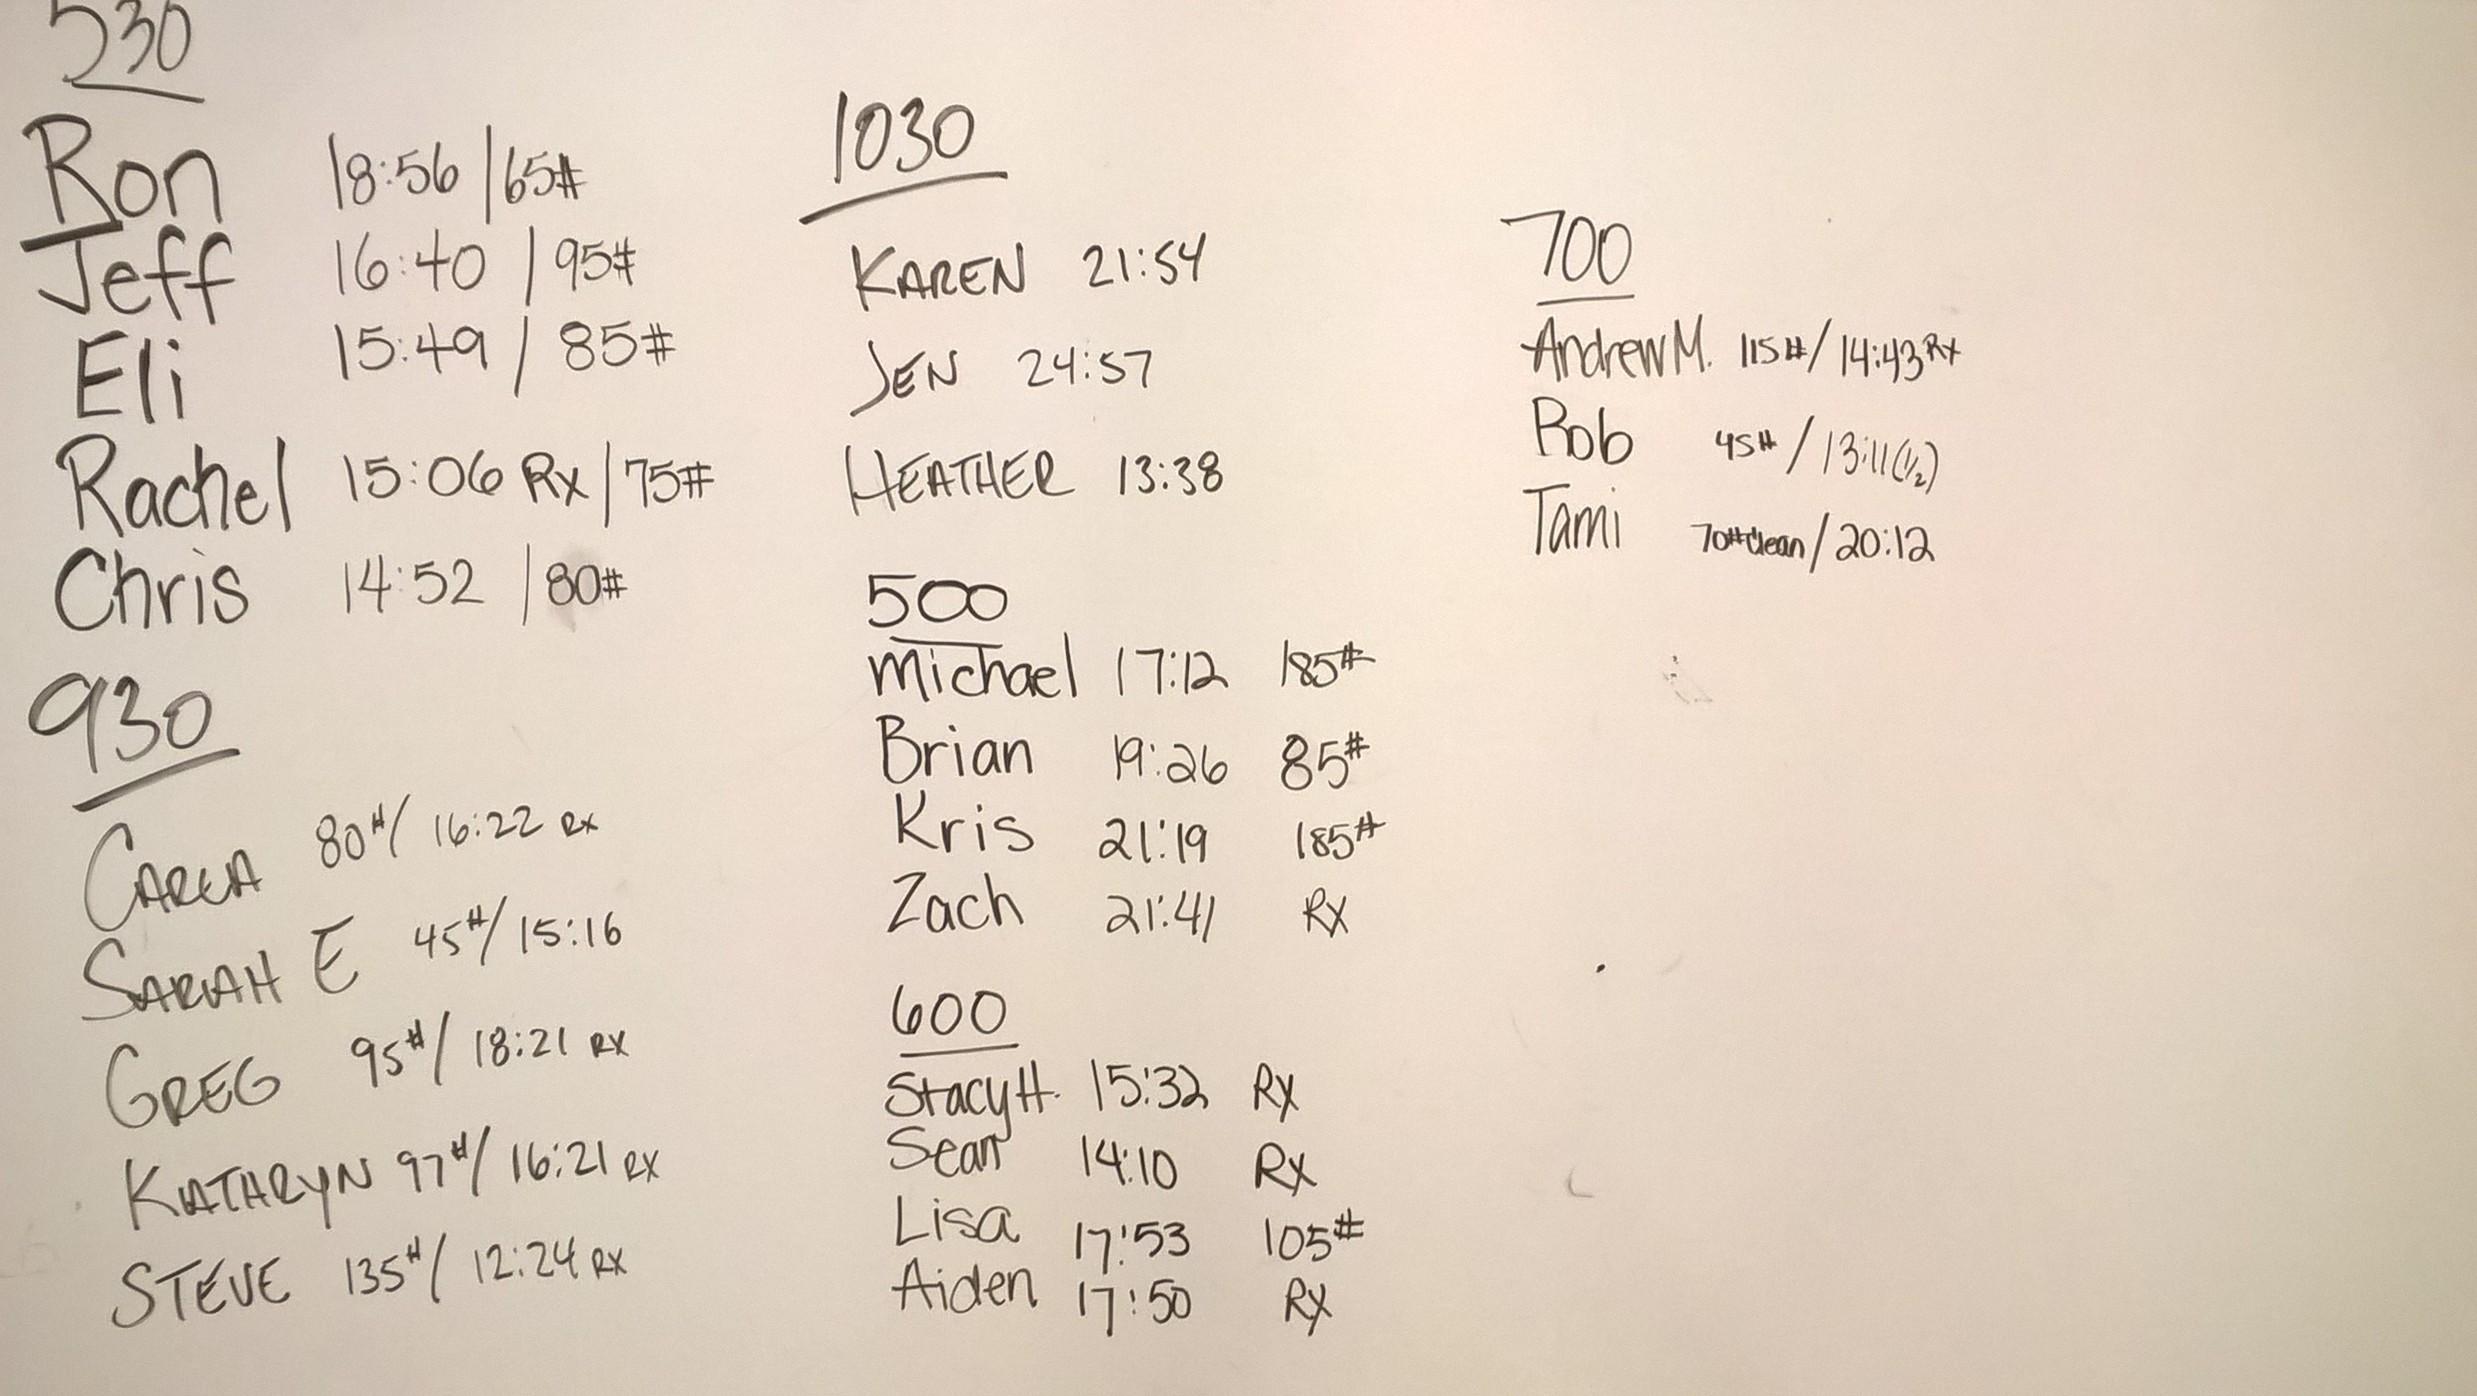 530
Ron 18:56 / 65#
Jeff 16:40 / 95#
Eli 15:49 / 85#
Rachel 15:06 Rx / 75#
Chris 14:52 / 80#
930
CARLA 80# / 16:22 RX
SARAH E 45# / 15:16
GREG 95# / 18:21 RX
KATHRYN 97# / 16:21 RX
STEVE 135# / 12:24 RX
1030
KAREN 21:54
JEN 24:57
HEATHER 13:38
500
Michael 17:12 185#
Brian 19:26 85#
Kris 21:19 185#
Zach 21:41 RX
600
Stacy H. 15:32 RX
Sean 14:10 RX
Lisa 17:53 105#
Aiden 17:50 RX
700
Andrew M. 115# / 14:43 Rx
Rob 45# / 13:11 (1/2)
Tami 70# clean / 20:12